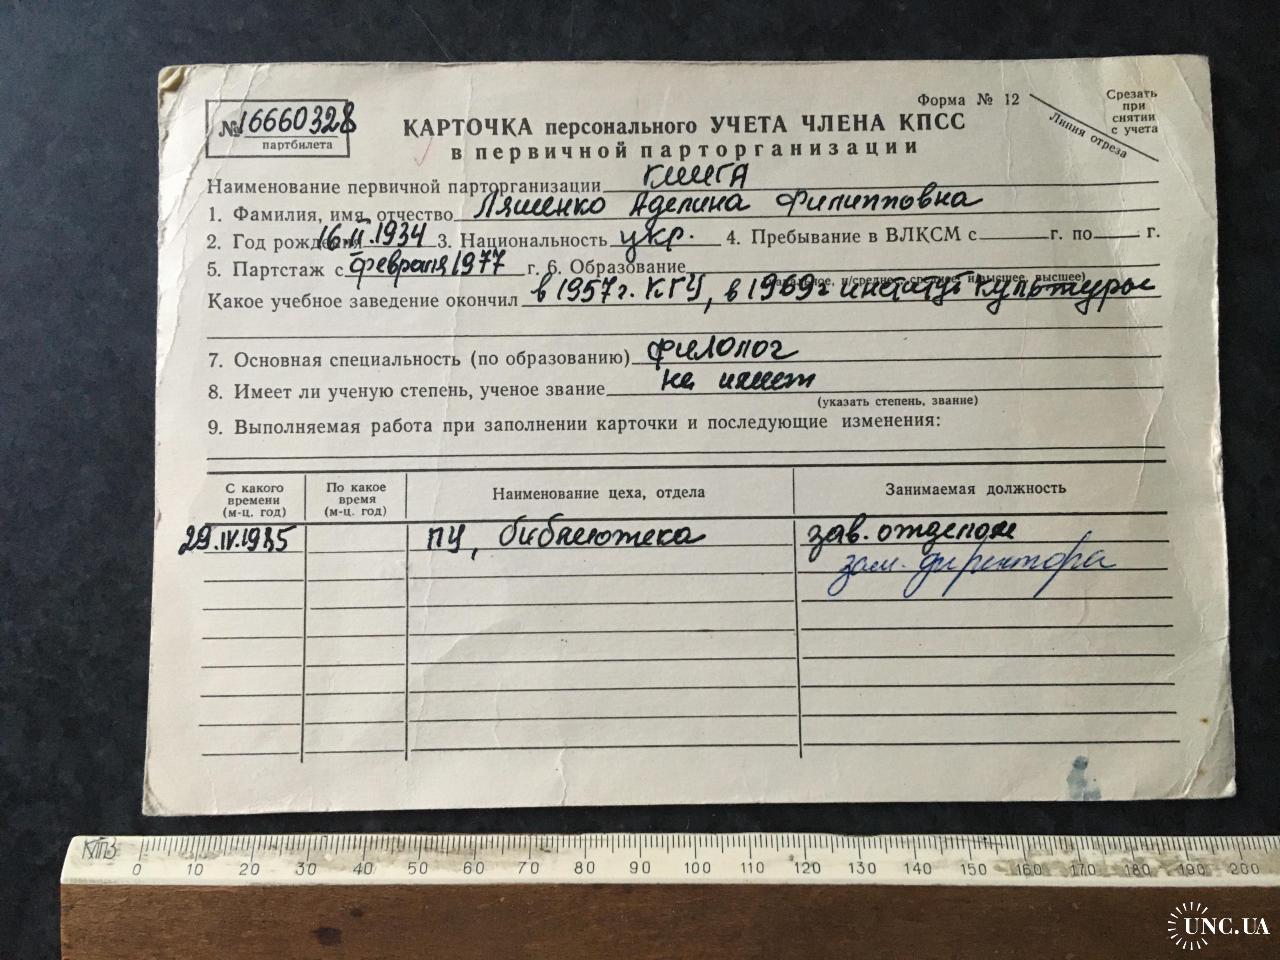 Форма № 12
Срезать
при
снятии
с учета
Линия отреза
№ 16660328
партбилета
КАРТОЧКА персонального УЧЕТА ЧЛЕНА КПСС
в первичной парторганизации
Наименование первичной парторганизации КМИГА
1. Фамилия, имя, отчество Ляшенко Аделина Филипповна
2. Год рождения 16.II.1934 3. Национальность укр. 4. Пребывание в ВЛКСМ с г. по г.
5. Партстаж с февраля 1977 г. 6. Образование
(начальное, н/среднее, среднее, н/высшее, высшее)
Какое учебное заведение окончил в 1957 г. КГУ, в 1969 г институт культуры
7. Основная специальность (по образованию) филолог
8. Имеет ли ученую степень, ученое звание не имеет
(указать степень, звание)
9. Выполняемая работа при заполнении карточки и последующие изменения:
С какого времени (м-ц. год) По какое время (м-ц. год) Наименование цеха, отдела Занимаемая должность
29.IV.1985 ПУ, библиотека зав. отделом
зам. директора
КПЗ
0 10 20 30 40 50 60 70 80 90 100 110 120 130 140 150 160 170 180 190 200
UNC.UA